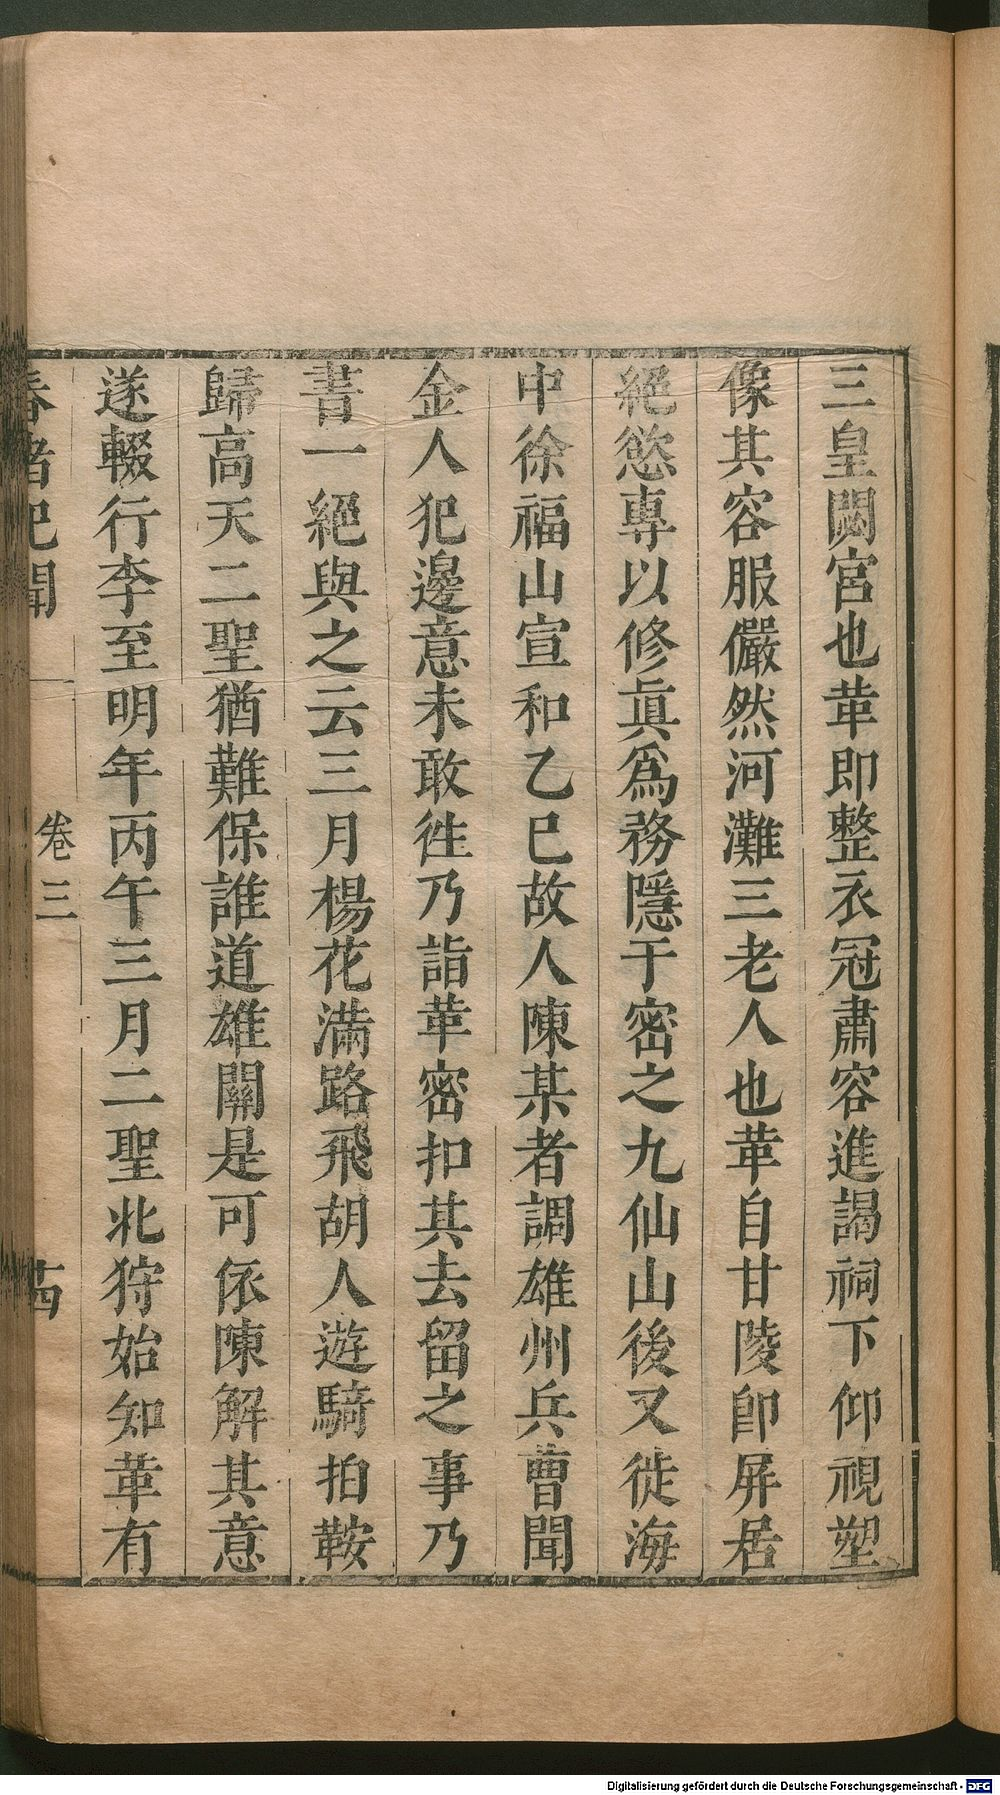 三皇闕宮也革即整衣冠肅容進謁祠下仰視塑
像其容服儼然河灘三老人也革自甘陵卽屏居
絕慾專以修眞爲務隱于密之九仙山後又徙海
中徐福山宣和乙巳故人陳某者調雄州兵曹聞
金人犯邊意未敢徃乃詣革密扣其去留之事乃
書一絕與之云三月楊花滿路飛胡人遊騎拍鞍
歸高天二聖猶難保誰道雄關是可依陳解其意
遂輟行李至明年丙午三月二聖北狩始知革有
春渚紀聞 卷三 十四
Digitalisierung gefördert durch die Deutsche Forschungsgemeinschaft - DFG